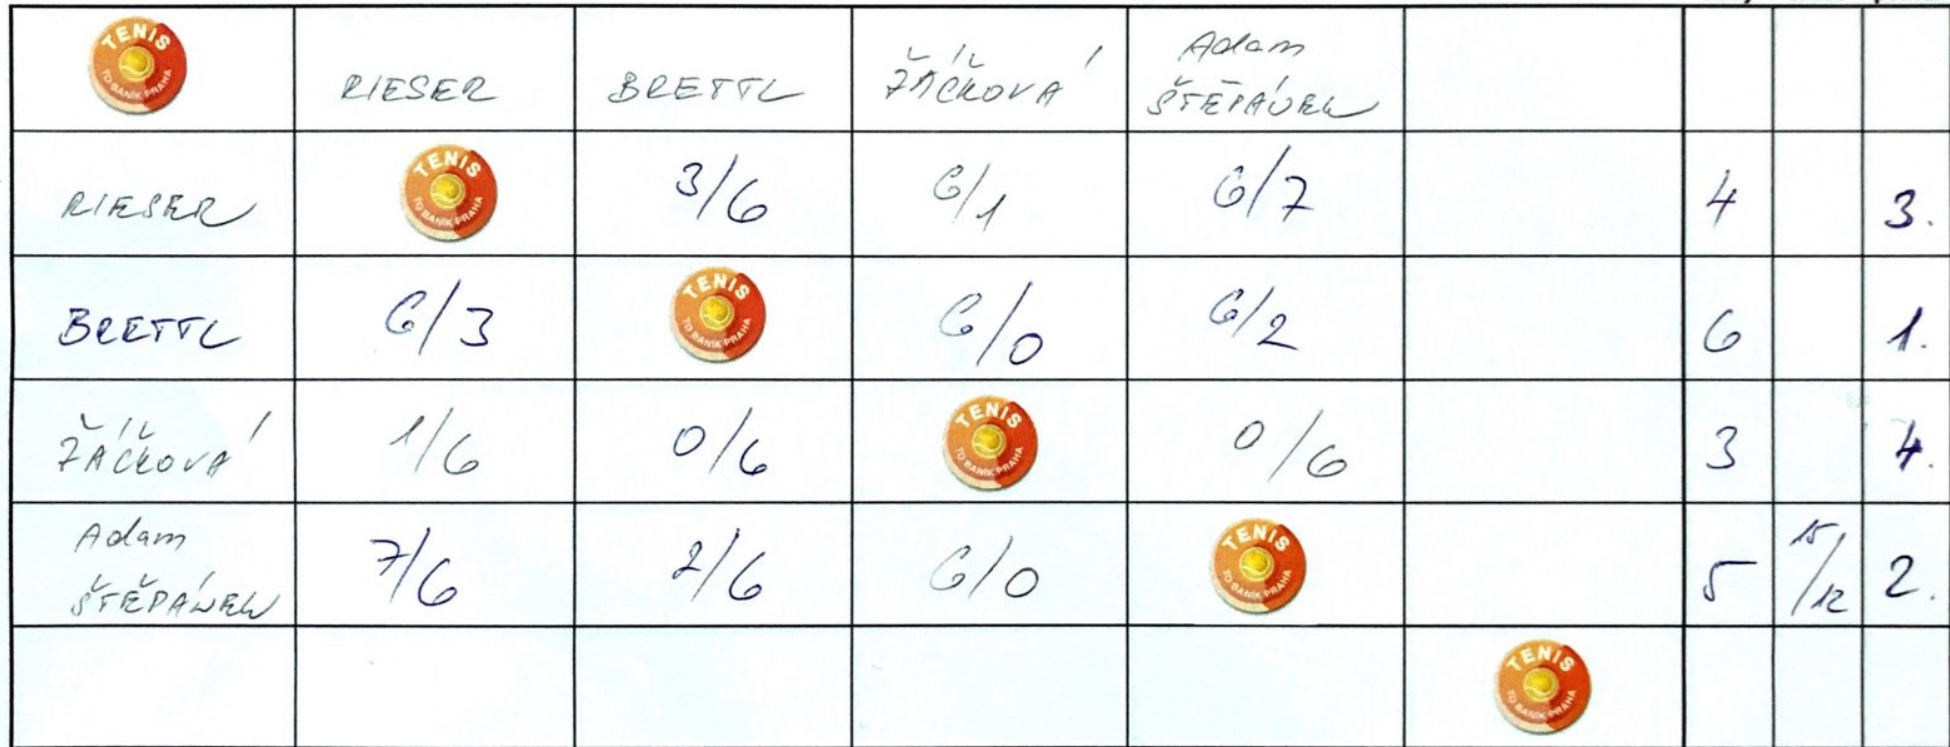 TENIS
TO BANÍK PRAHA
RIESER BRETTL ŽÁČKOVÁ Adam
ŠTĚPÁNEK
RIESER TENIS TO BANÍK PRAHA 3/6 6/1 6/7 4 3.
BRETTL 6/3 TENIS TO BANÍK PRAHA 6/0 6/2 6 1.
ŽÁČKOVÁ 1/6 0/6 TENIS TO BANÍK PRAHA 0/6 3 4.
Adam
ŠTĚPÁNEK 7/6 2/6 6/0 TENIS TO BANÍK PRAHA 5 15/12 2.
TENIS
TO BANÍK PRAHA